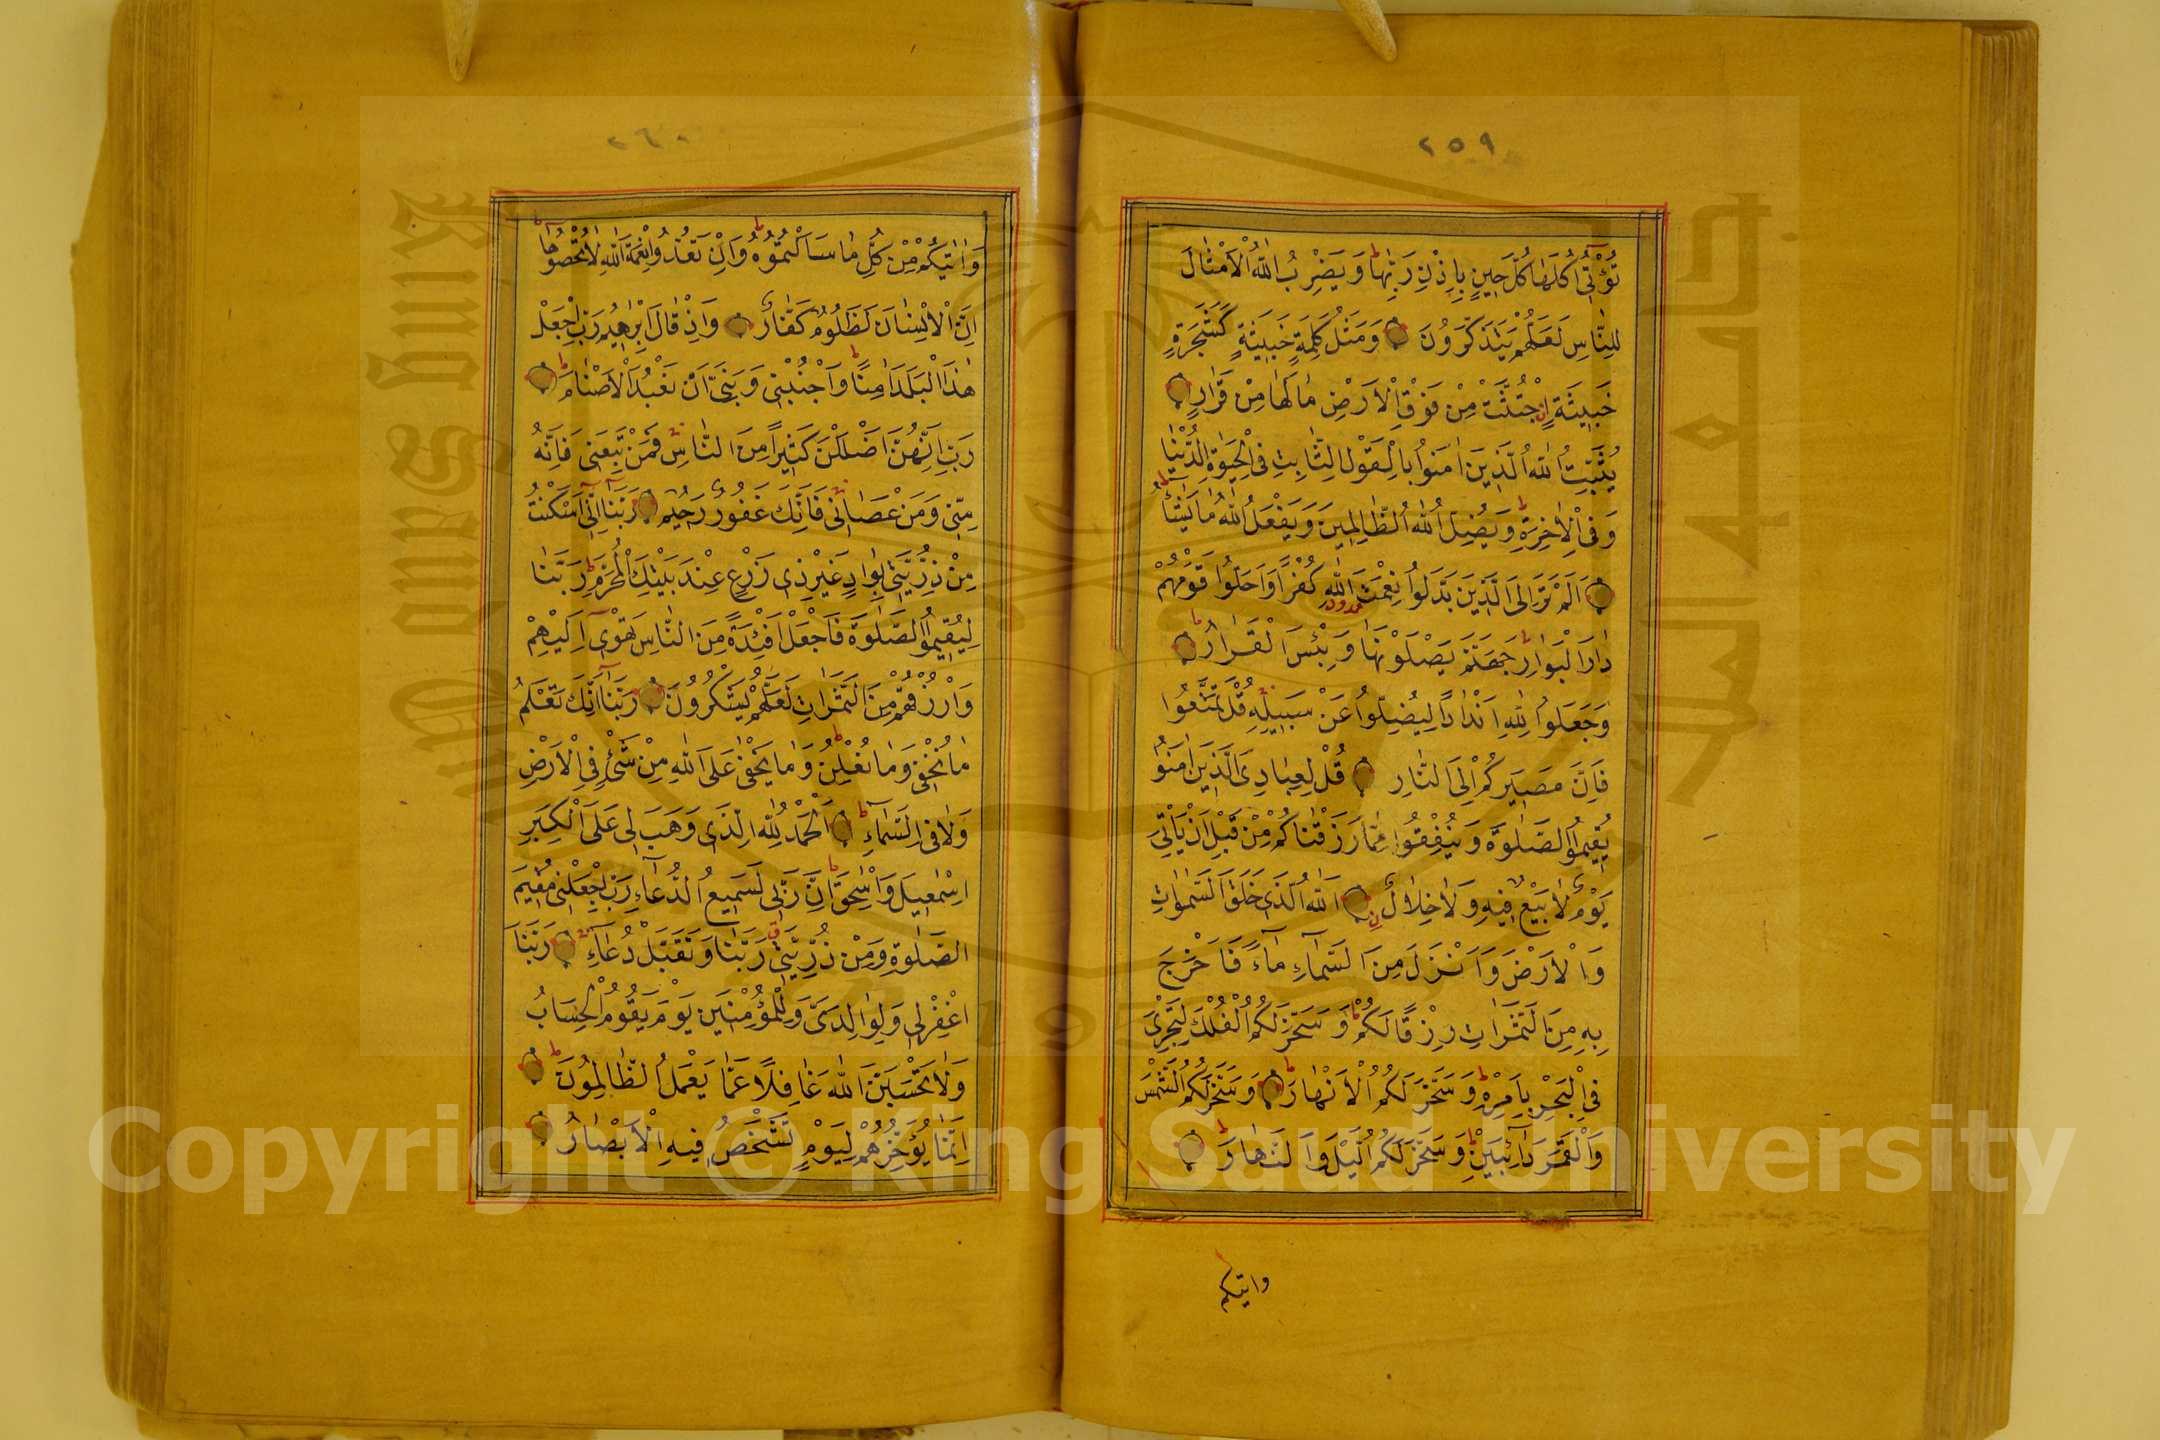 ٢٥٩
تُؤْتِى اُكُلَهَا كُلَّ حِينٍ بِاِذْنِ رَبِّهَا وَيَضْرِبُ اللّٰهُ الْاَمْثَالَ
لِلنَّاسِ لَعَلَّهُمْ يَتَذَكَّرُونَ وَمَثَلُ كَلِمَةٍ خَبِيثَةٍ كَشَجَرَةٍ
خَبِيثَةٍ اِجْتُثَّتْ مِنْ فَوْقِ الْاَرْضِ مَا لَهَا مِنْ قَرَارٍ
يُثَبِّتُ اللّٰهُ الَّذِينَ اٰمَنُوا بِالْقَوْلِ الثَّابِتِ فِى الْحَيٰوةِ الدُّنْيَا
وَفِى الْاٰخِرَةِ وَيُضِلُّ اللّٰهُ الظَّالِمِينَ وَيَفْعَلُ اللّٰهُ مَا يَشَآءُ
اَلَمْ تَرَ اِلَى الَّذِينَ بَدَّلُوا نِعْمَتَ اللّٰهِ كُفْرًا وَاَحَلُّوا قَوْمَهُمْ
دَارَ الْبَوَارِ جَهَنَّمَ يَصْلَوْنَهَا وَبِئْسَ الْقَرَارُ
وَجَعَلُوا لِلّٰهِ اَنْدَادًا لِيُضِلُّوا عَنْ سَبِيلِهِ قُلْ تَمَتَّعُوا
فَاِنَّ مَصِيرَكُمْ اِلَى النَّارِ قُلْ لِعِبَادِىَ الَّذِينَ اٰمَنُوا
يُقِيمُوا الصَّلٰوةَ وَيُنْفِقُوا مِمَّا رَزَقْنَاكُمْ مِنْ قَبْلِ اَنْ يَاْتِىَ
يَوْمٌ لَا بَيْعٌ فِيهِ وَلَا خِلَالٌ اَللّٰهُ الَّذِى خَلَقَ السَّمٰوَاتِ
وَالْاَرْضَ وَاَنْزَلَ مِنَ السَّمَآءِ مَآءً فَاَخْرَجَ
بِهِ مِنَ الثَّمَرَاتِ رِزْقًا لَكُمْ وَسَخَّرَ لَكُمُ الْفُلْكَ لِتَجْرِىَ
فِى الْبَحْرِ بِاَمْرِهِ وَسَخَّرَ لَكُمُ الْاَنْهَارَ وَسَخَّرَ لَكُمُ الشَّمْسَ
وَالْقَمَرَ دَآئِبَيْنِ وَسَخَّرَ لَكُمُ الَّيْلَ وَالنَّهَارَ
واتيكم
٢٦٠
وَاٰتٰيكُمْ مِنْ كُلِّ مَا سَاَلْتُمُوهُ وَاِنْ تَعُدُّوا نِعْمَةَ اللّٰهِ لَا تُحْصُوهَا
اِنَّ الْاِنْسَانَ لَظَلُومٌ كَفَّارٌ وَاِذْ قَالَ اِبْرٰهِيمُ رَبِّ اجْعَلْ
هٰذَا الْبَلَدَ اٰمِنًا وَاجْنُبْنِى وَبَنِىَّ اَنْ نَعْبُدَ الْاَصْنَامَ
رَبِّ اِنَّهُنَّ اَضْلَلْنَ كَثِيرًا مِنَ النَّاسِ فَمَنْ تَبِعَنِى فَاِنَّهُ
مِنِّى وَمَنْ عَصَانِى فَاِنَّكَ غَفُورٌ رَحِيمٌ رَبَّنَا اِنِّى اَسْكَنْتُ
مِنْ ذُرِّيَّتِى بِوَادٍ غَيْرِ ذِى زَرْعٍ عِنْدَ بَيْتِكَ الْمُحَرَّمِ رَبَّنَا
لِيُقِيمُوا الصَّلٰوةَ فَاجْعَلْ اَفْئِدَةً مِنَ النَّاسِ تَهْوِى اِلَيْهِمْ
وَارْزُقْهُمْ مِنَ الثَّمَرَاتِ لَعَلَّهُمْ يَشْكُرُونَ رَبَّنَا اِنَّكَ تَعْلَمُ
مَا نُخْفِى وَمَا نُعْلِنُ وَمَا يَخْفٰى عَلَى اللّٰهِ مِنْ شَىْءٍ فِى الْاَرْضِ
وَلَا فِى السَّمَآءِ اَلْحَمْدُ لِلّٰهِ الَّذِى وَهَبَ لِى عَلَى الْكِبَرِ
اِسْمٰعِيلَ وَاِسْحٰقَ اِنَّ رَبِّى لَسَمِيعُ الدُّعَآءِ رَبِّ اجْعَلْنِى مُقِيمَ
الصَّلٰوةِ وَمِنْ ذُرِّيَّتِى رَبَّنَا وَتَقَبَّلْ دُعَآءِ رَبَّنَا
اغْفِرْ لِى وَلِوَالِدَىَّ وَلِلْمُؤْمِنِينَ يَوْمَ يَقُومُ الْحِسَابُ
وَلَا تَحْسَبَنَّ اللّٰهَ غَافِلًا عَمَّا يَعْمَلُ الظَّالِمُونَ
اِنَّمَا يُؤَخِّرُهُمْ لِيَوْمٍ تَشْخَصُ فِيهِ الْاَبْصَارُ
Copyright © King Saud University